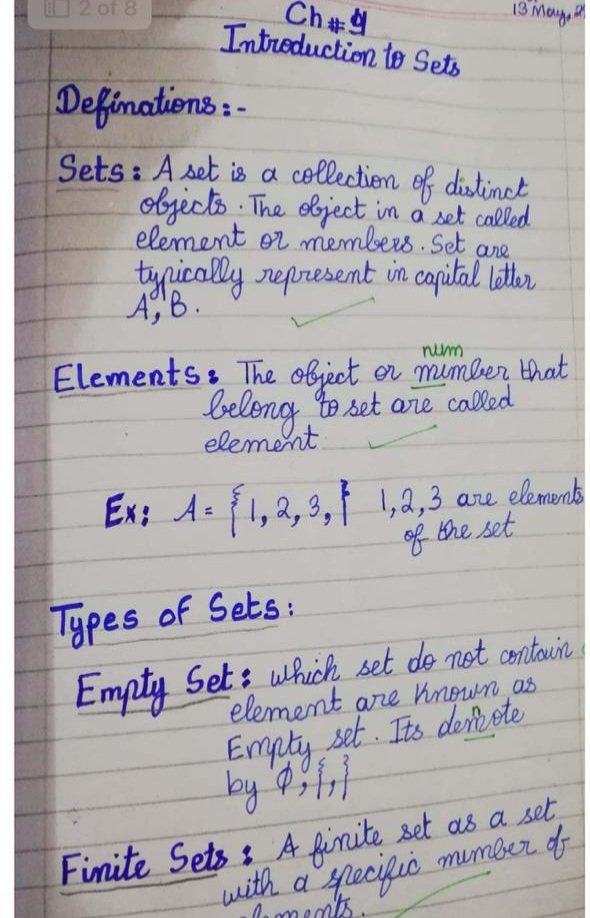 2 of 8
13 May, 2
Ch # 9
Introduction to Sets
Definations :-
Sets : A set is a collection of distinct
objects. The object in a set called
element or members. Set are
typically represent in capital letter
A, B.
num
Elements : The object or mimber that
belong to set are called
element
Ex: A = {1, 2, 3, } 1, 2, 3 are elements
of the set
Types of Sets :
Empty Set : which set do not contain
element are known as
Empty set. Its demote
by ϕ, { , }
Finite Sets : A finite set as a set
with a specific mumber of
elements.